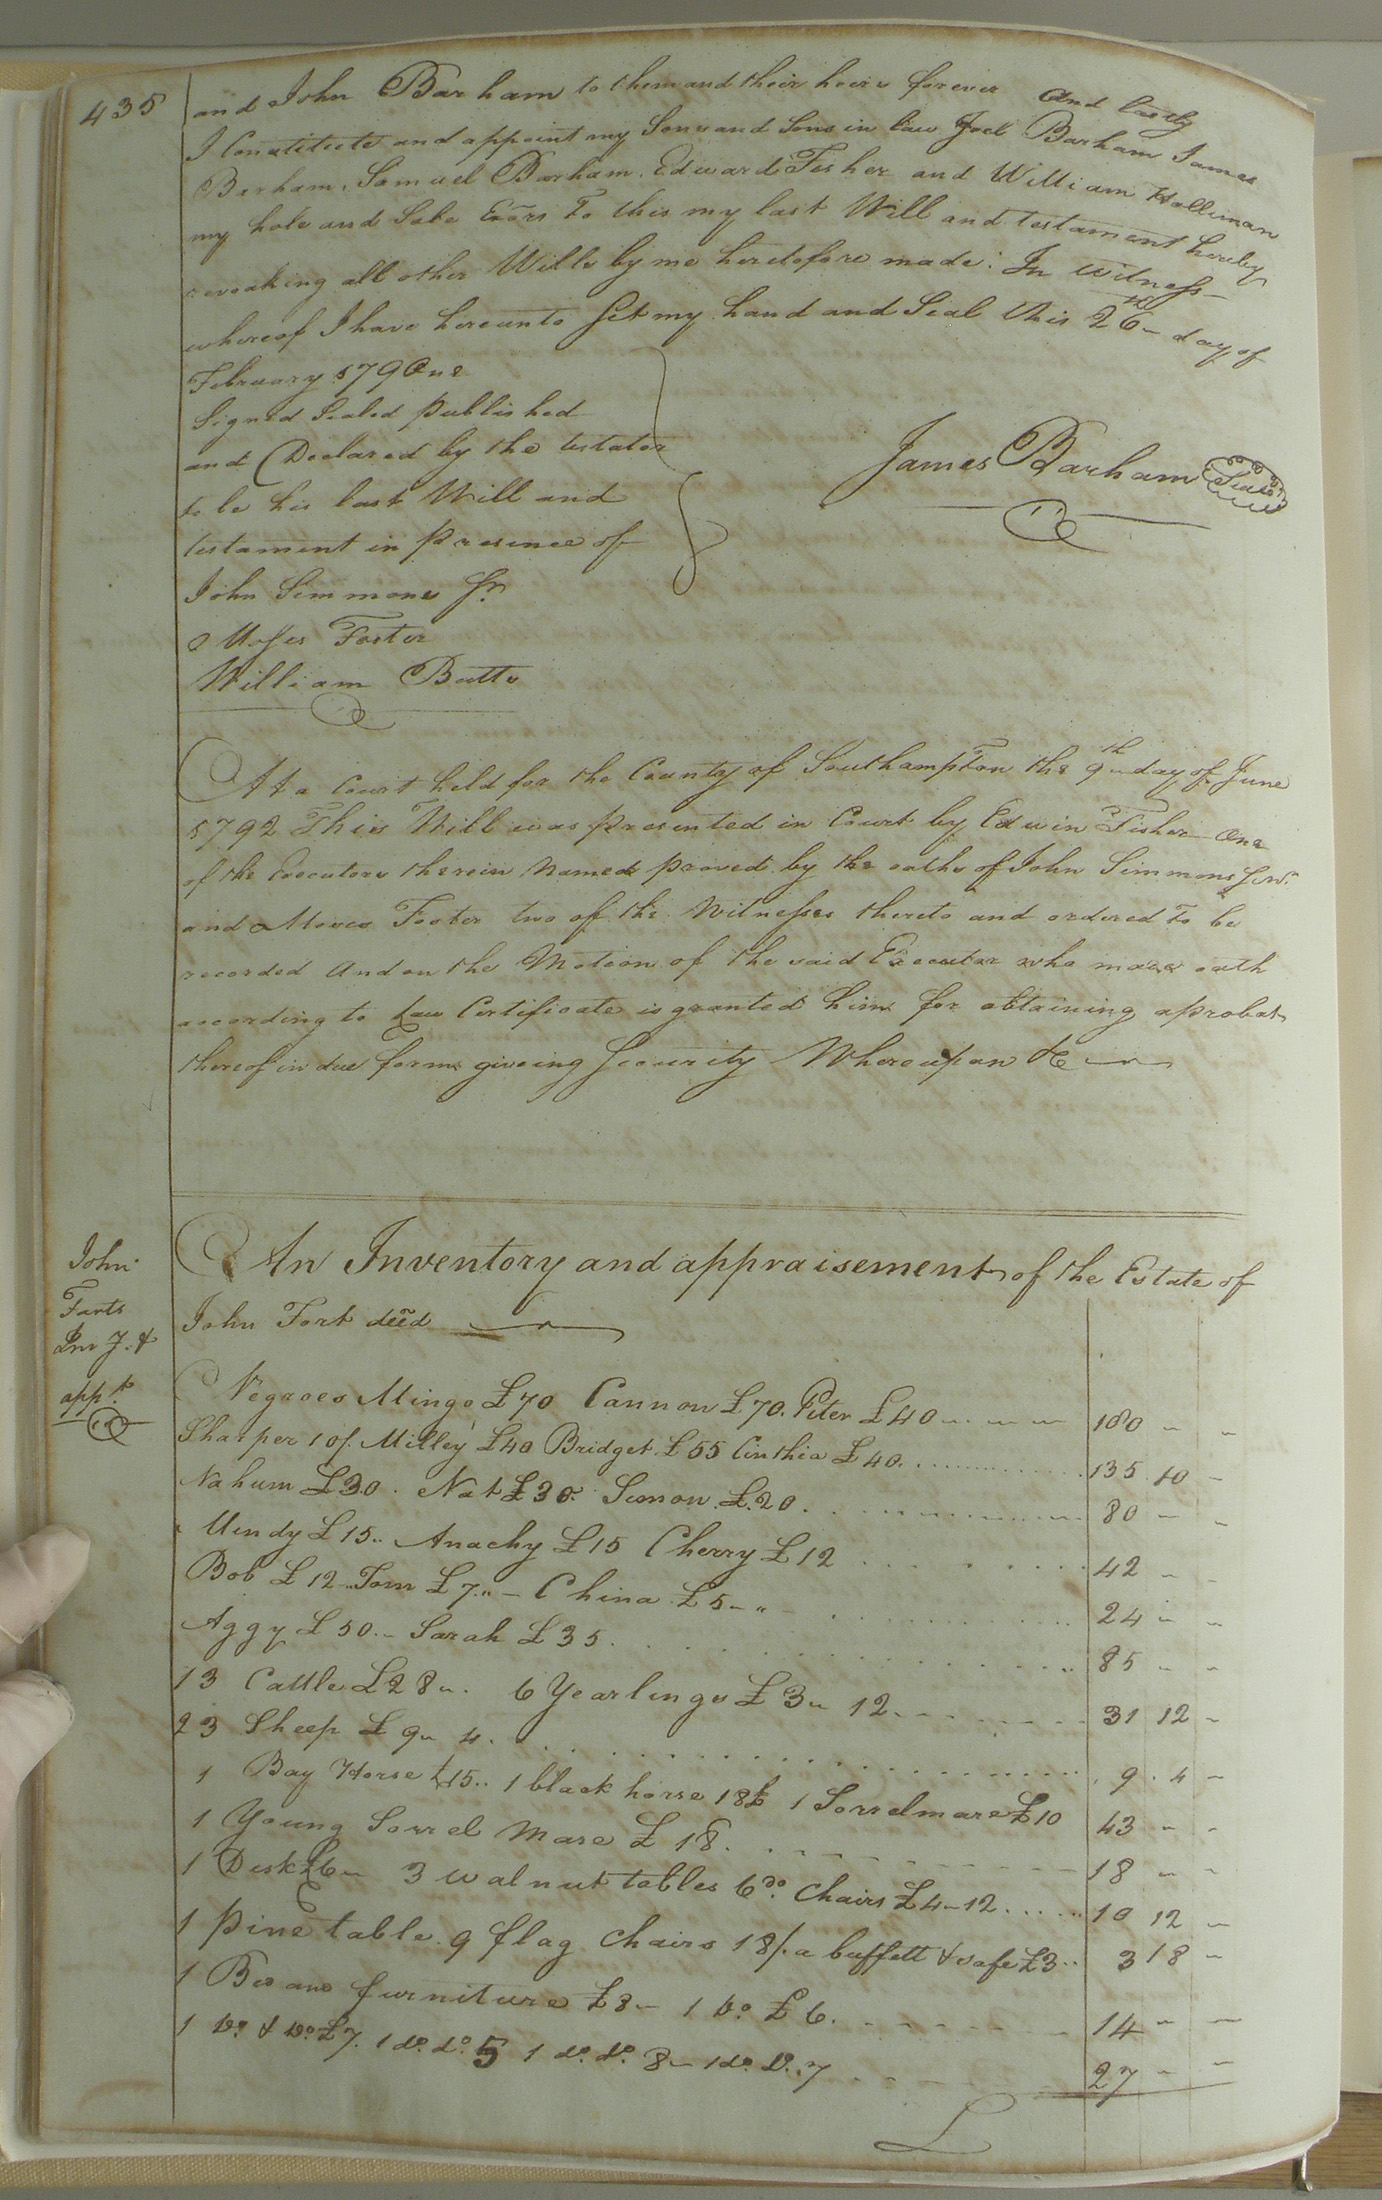 435
and John Barham to them and their heirs forever And lastly
I Constitute and appoint my Sons and Sons in law Joel Barham James
Barham, Samuel Barham, Edward Fisher and William Halliman
my hole and Sole Exõrs To this my last Will and testament hereby
revoaking all other Wills by me heretofore made: In witness
whereof I have hereunto Set my hand and Seal this 26th day of
February 179One
Signed Sealed published
and Declared by the testator
to be his last Will and
testament in presence of
John Simmons Jr.
Moses Foster
William Butts
James Barham Seal
At a Court held for the County of Southampton the 9th day of June
1792 This Will was presented in Court by Edwin Fisher One
of the Executors therein Named proved by the oaths of John Simmons Junr.
and Moses Foster two of the Witnesses thereto and ordered To be
recorded And on the Motion of the said Executor who made oath
according to Law Certificate is granted him for obtaining a probat
thereof in due form giveing Security Whereupon &c
John
Forts
Inv. &
appt.
An Inventory and appraisement of the Estate of
John Fort decd
Negroes Mingo £70 Cannon £70. Peter £40 180 " "
Sharper 10/. Milley £40 Bridget £55 Cinthia £40. 135 10 "
Nahum £30. Nat £30. Simon £.20. 80 " "
Mindy £15.. Anachy £15 Cherry £12 42 " "
Bob £12.. Tom £7.. China £5 " " 24 " "
Aggy £50.. Sarah £35. 85 " "
13 Cattle £28 ". 6 Yearlings £3 " 12. 31 12 "
23 Sheep £9 " 4. 9. 4 "
1 Bay Horse £15.. 1 black horse 18£ 1 Sorrel mare £10 43 " "
1 Young Sorrel Mare £18. 18 " "
1 Desk £6 " 3 walnut tables 6 do. Chairs £4 " 12 10 12 "
1 pine table. 9 flag Chairs 18/. a buffett & safe £3.. 3 18 "
1 Bed and furniture £8 " 1 Do. £6. 14 " "
1 Do. & Do. £7. 1 do. do. 5 1 do. do. 8 " 1 do. D. 7 27 " "
£